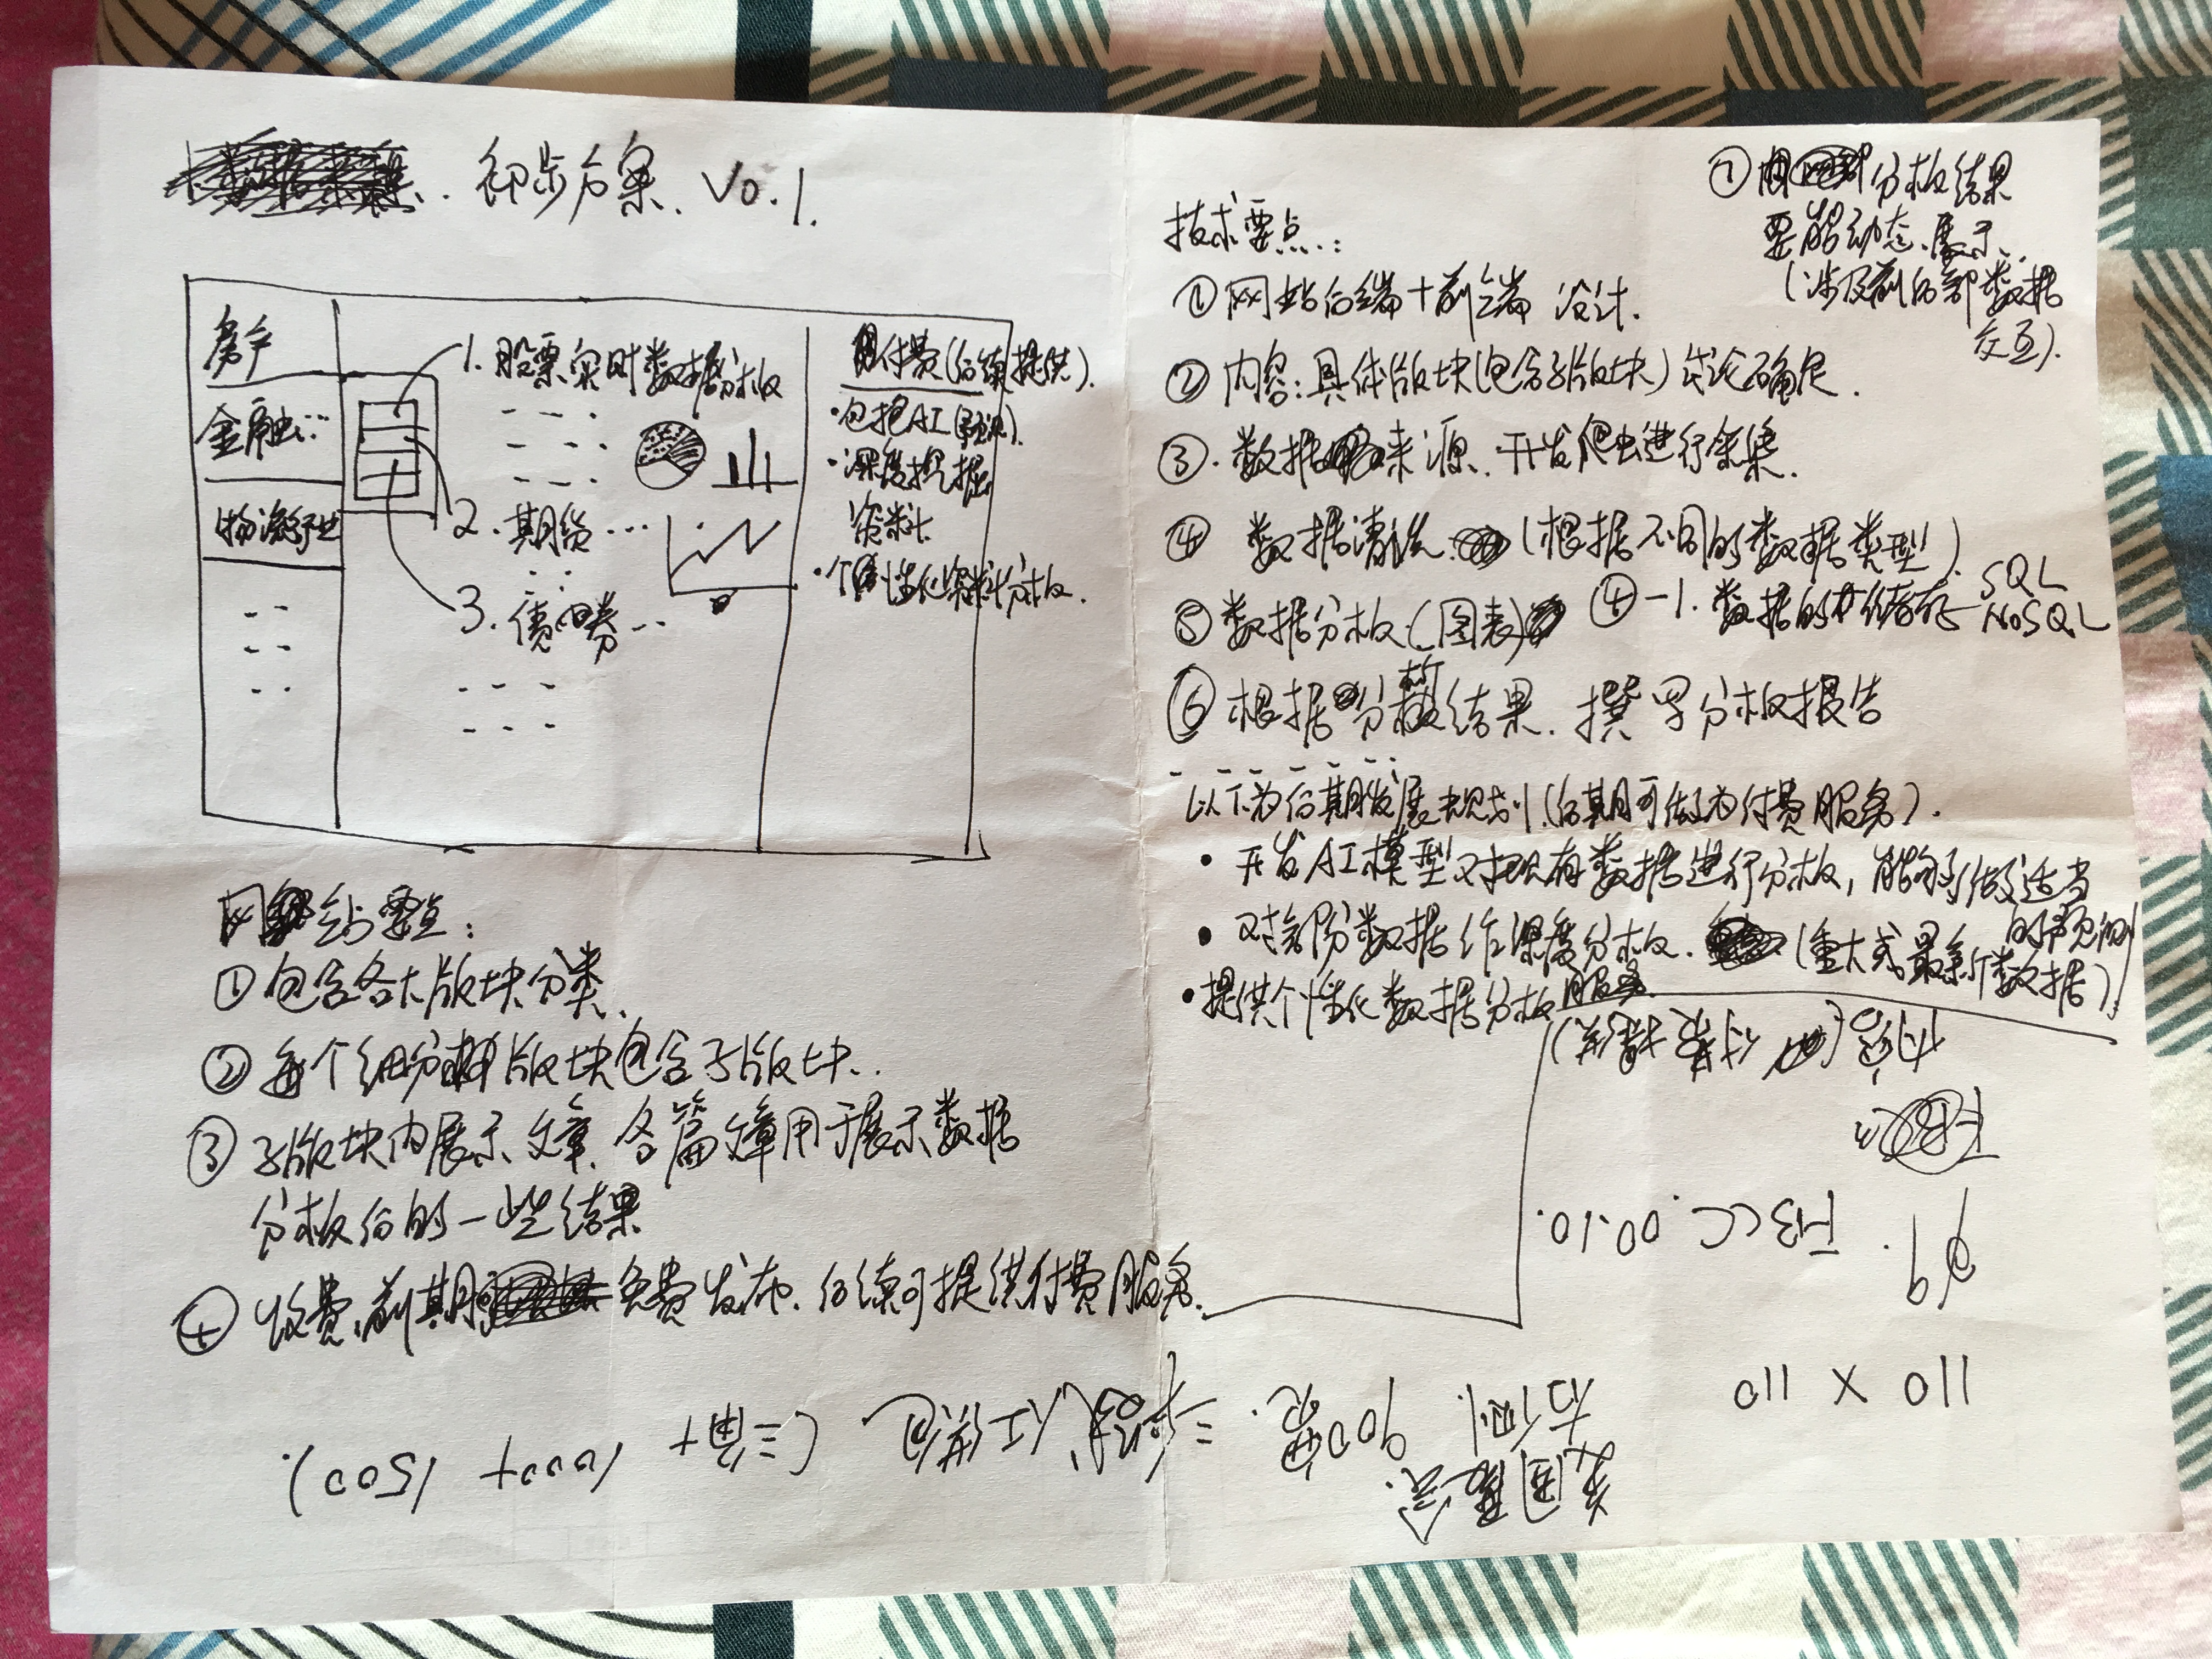 初步方案. V0.1.
房产
金融...
物流行业
1. 股票实时数据分析
2. 期货...
3. 债券...
付费(后续提供).
·包括AI(预测).
·深度挖掘
资料
·个性化资料分析.
网站要点:
①包含各大版块分类.
②每个细分版块包含子版块..
③子版块内展示文章. 各篇文章用于展示数据
分析后的一些结果
④收费.前期免费发布.后续可提供付费服务.
技术要点..:
①网站后端+前端 设计.
②内容:具体版块(包含子版块)讨论确定.
③.数据来源.开发爬虫进行采集.
④ 数据清洗.(根据不同的数据类型).
④-1.数据的储存 SQL
NoSQL
⑤数据分析.(图表)
⑥根据分析结果.撰写分析报告
⑦分析结果
要能动态展示.
(涉及前后部数据
交互).
以下为后期发展规划(后期可做为付费服务).
·开发AI模型对现有数据进行分析,能够做适当
的预测
·对部份数据作深度分析.(重大或最新数据).
·提供个性化数据分析服务
FBCC.00.10.
110 X 110
右侧. 900宽.
(三典+ 1000+ 1500).